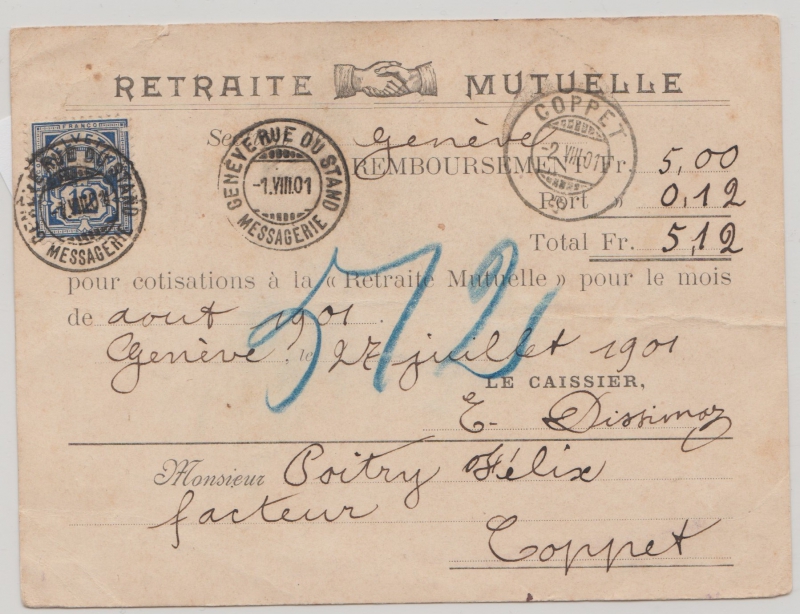 RETRAITE MUTUELLE
FRANCO
GENÈVE RUE DU STAND
-1.VIII.01
MESSAGERIE
GENÈVE RUE DU STAND
-1.VIII.01
MESSAGERIE
COPPET
-2.VIII.01
Se Genève
REMBOURSEMENT Fr. 5,00
Port » 0,12
Total Fr. 5,12
pour cotisations à la « Retraite Mutuelle » pour le mois
de aout 1901.
Genève, le 27 juillet 1901
512
LE CAISSIER,
E. Dissimoz
Monsieur Poitry Félix
facteur
Coppet